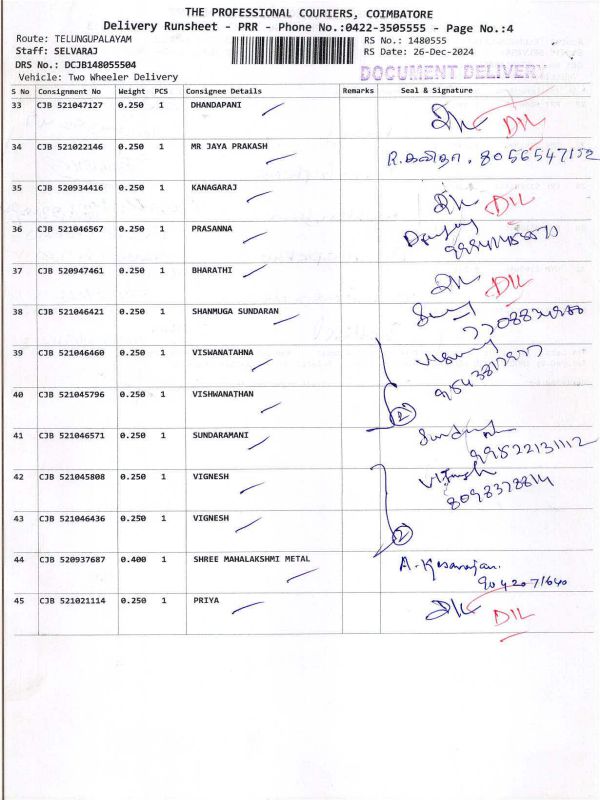 THE PROFESSIONAL COURIERS, COIMBATORE
Delivery Runsheet - PRR - Phone No.:0422-3505555 - Page No.:4
Route: TELUNGUPALAYAM
Staff: SELVARAJ
DRS No.: DCJB148055504
Vehicle: Two Wheeler Delivery
RS No.: 1480555
RS Date: 26-Dec-2024
DOCUMENT DELIVERY
S No Consignment No Weight PCS Consignee Details Remarks Seal & Signature
33 CJB 521047127 0.250 1 DHANDAPANI
34 CJB 521022146 0.250 1 MR JAYA PRAKASH R.கவிதா, 8056547152
35 CJB 520934416 0.250 1 KANAGARAJ
36 CJB 521046567 0.250 1 PRASANNA
37 CJB 520947461 0.250 1 BHARATHI
38 CJB 521046421 0.250 1 SHANMUGA SUNDARAN
39 CJB 521046460 0.250 1 VISWANATAHNA
40 CJB 521045796 0.250 1 VISHWANATHAN 2
41 CJB 521046571 0.250 1 SUNDARAMANI
9952213 1112
42 CJB 521045808 0.250 1 VIGNESH
8098378814
43 CJB 521046436 0.250 1 VIGNESH 2
44 CJB 520937687 0.400 1 SHREE MAHALAKSHMI METAL
9042071640
45 CJB 521021114 0.250 1 PRIYA